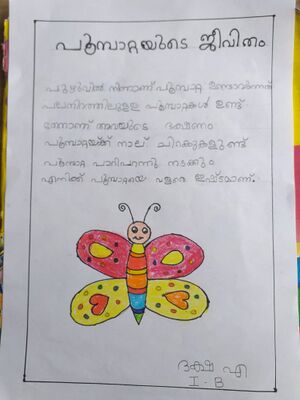 പൂമ്പാറ്റയുടെ ജീവിതം
പുഴുവിൽ നിന്നാണ് പൂമ്പാറ്റ ഉണ്ടാവുന്നത്
പലനിറത്തിലുളള പൂമ്പാറ്റകൾ ഉണ്ട്
തേനാണ് അവയുടെ ഭക്ഷണം
പൂമ്പാറ്റയ്ക്ക് നാല് ചിറക്കുകളുണ്ട്
പൂമ്പാറ്റ പാറിപറന്നു നടക്കും
എനിക്ക് പൂമ്പാറ്റയെ വളരെ ഇഷ്ടമാണ്.
ദക്ഷ എ
I - B